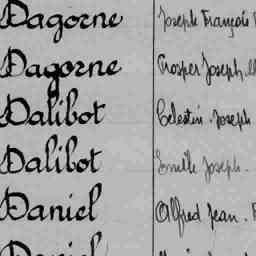 Dagorne Joseph François
Dagorne Prosper Joseph
Dalibot Celestin Joseph
Dalibot Emile Joseph.
Daniel Alfred Jean.
Daniel